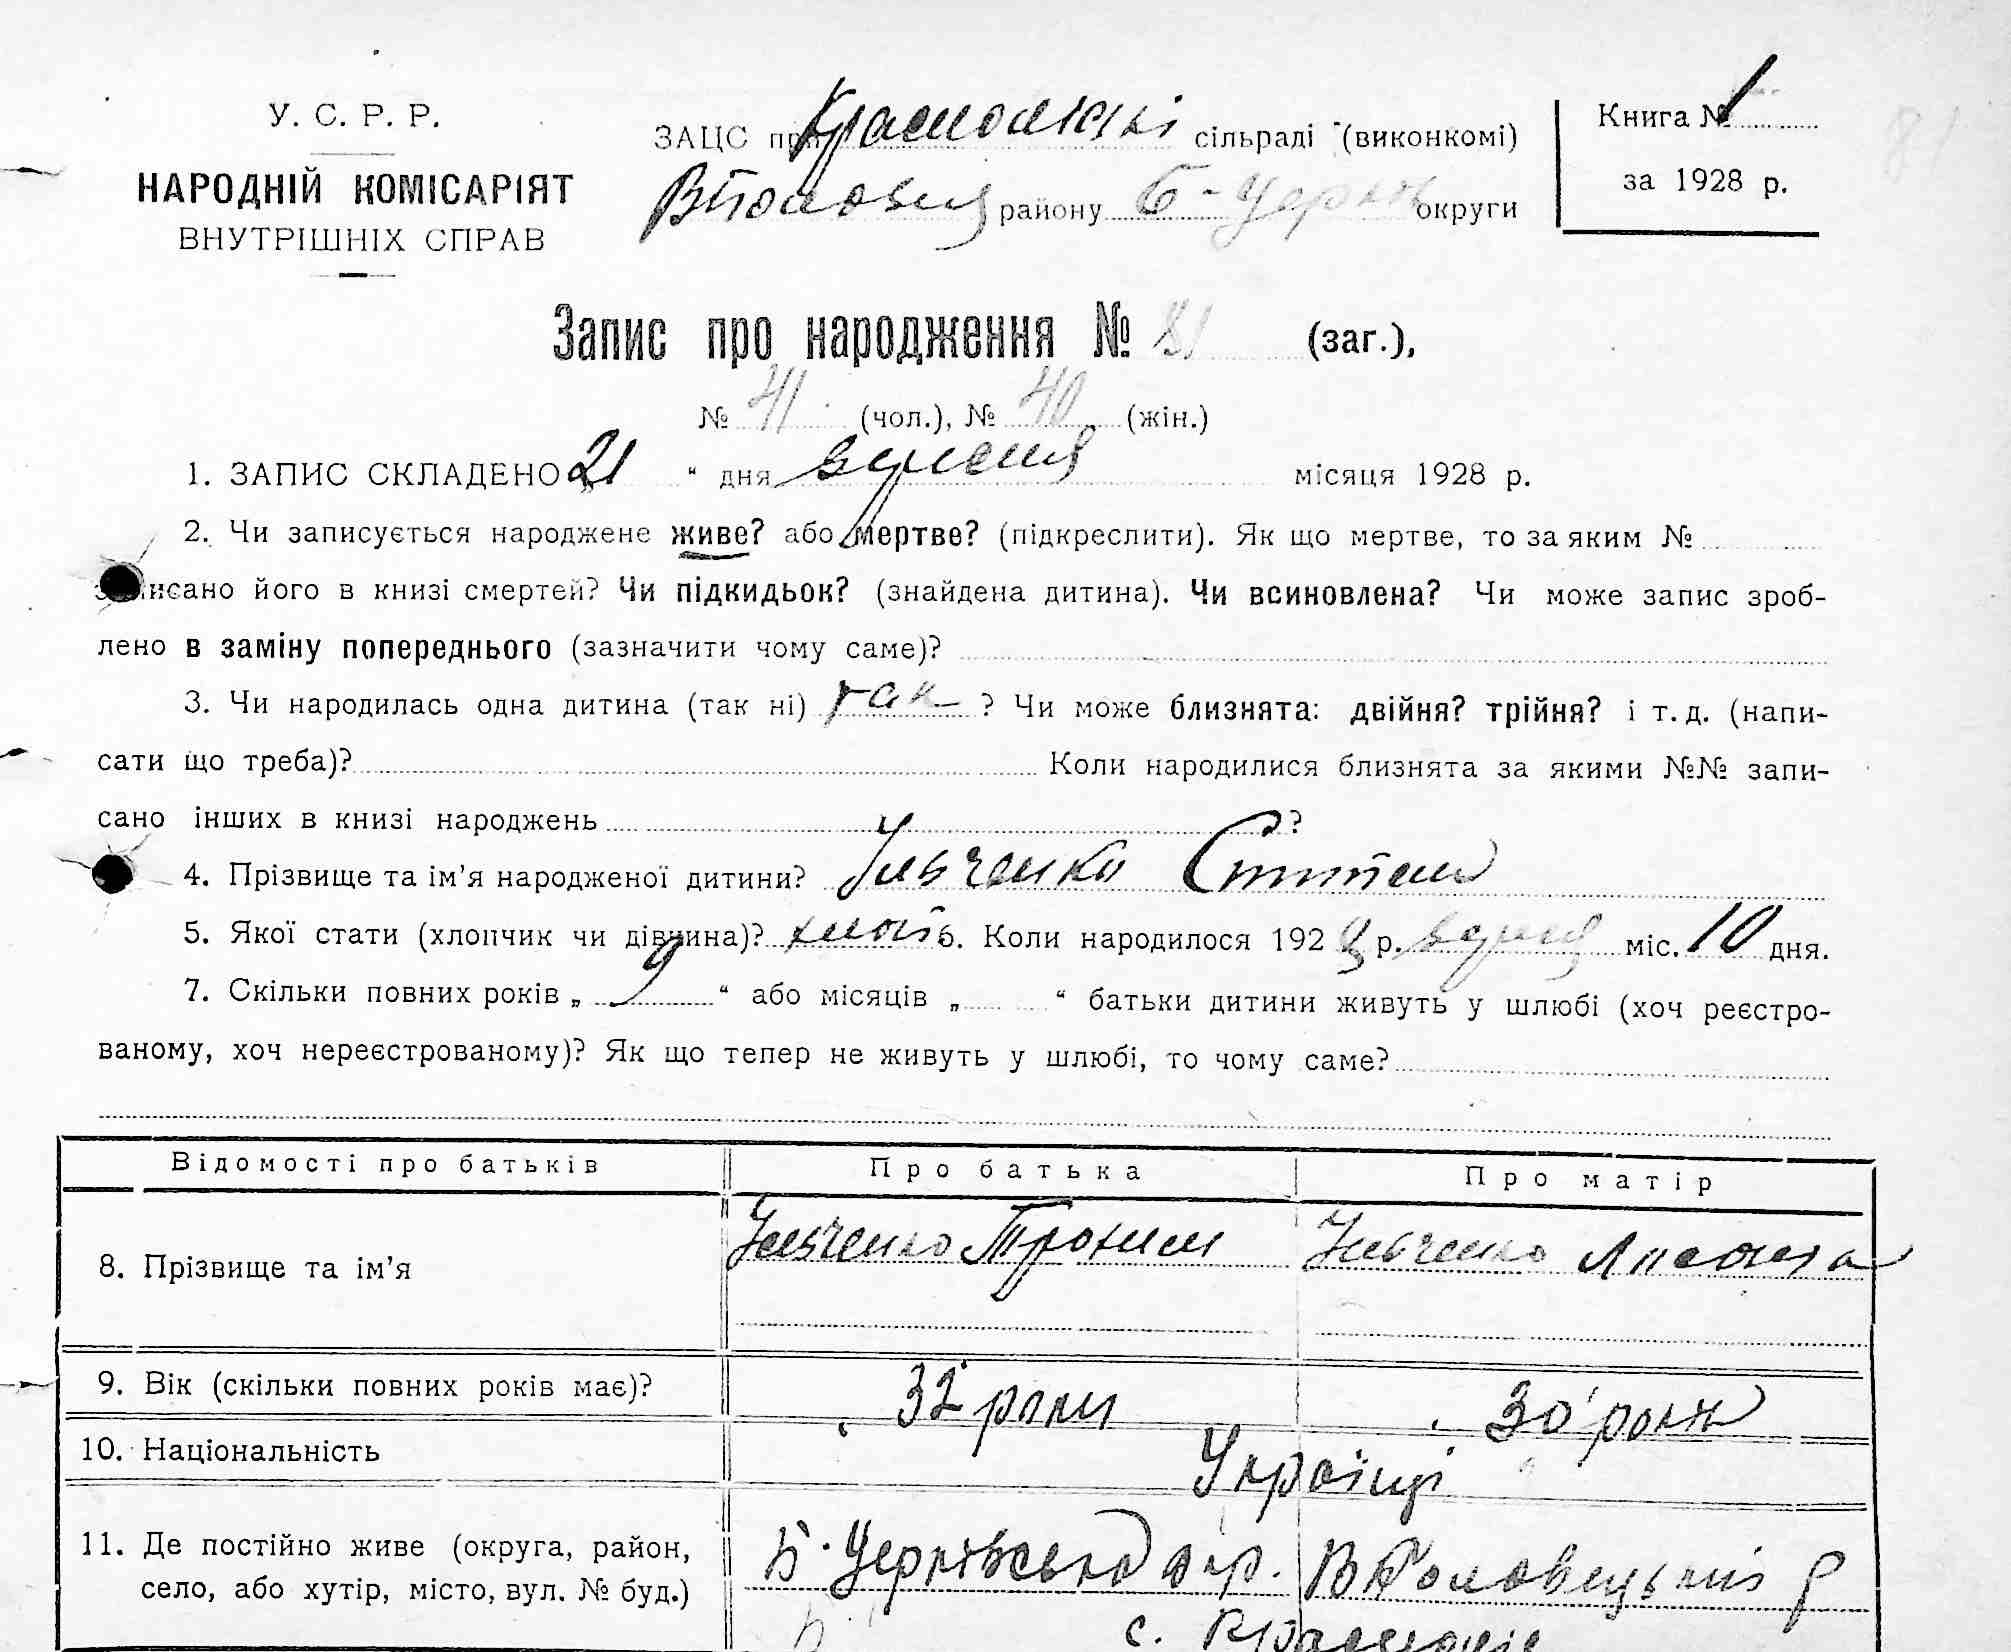 У. С. Р. Р.
НАРОДНІЙ КОМІСАРІЯТ
ВНУТРІШНІХ СПРАВ
ЗАЦС при сільраді (виконкомі)
району Б-Церків округи
Книга № 1
за 1928 р.
81
Запис про народження № 81 (заг.),
№ 41 (чол.), № 40 (жін.)
1. ЗАПИС СКЛАДЕНО 21 “ дня вересня місяця 1928 р.
2. Чи записується народжене живе? або мертве? (підкреслити). Як що мертве, то за яким №
записано його в книзі смертей? Чи підкидьок? (знайдена дитина). Чи всиновлена? Чи може запис зроб-
лено в заміну попереднього (зазначити чому саме)?
3. Чи народилась одна дитина (так ні) так ? Чи може близнята: двійня? трійня? і т. д. (напи-
сати що треба)? Коли народилися близнята за якими №№ запи-
сано інших в книзі народжень ?
4. Прізвище та ім’я народженої дитини? Ильченко
5. Якої стати (хлопчик чи дівчина)? хлоп 6. Коли народилося 1928 р. вересня міс. 10 дня.
7. Скільки повних років „ 9 “ або місяців „ “ батьки дитини живуть у шлюбі (хоч реєстро-
ваному, хоч нереєстрованому)? Як що тепер не живуть у шлюбі, то чому саме?
Відомості про батьків Про батька Про матір
8. Прізвище та ім’я Ильченко Трохим Ильченко
9. Вік (скільки повних років має)? 32 роки 30 років
10. Національність Українці
11. Де постійно живе (округа, район,
село, або хутір, місто, вул. № буд.)
Б. Церківської окр. р
с.